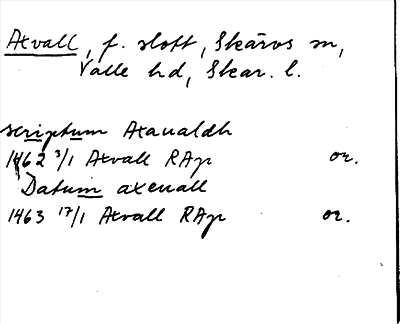 Axvall, f. slott, Skärvs sn,
Valle hd, Skar. l.
scriptum Axaualdh
1462 3/1 Axvall RAp or.
Datum axeuall
1463 17/1 Axvall RAp or.